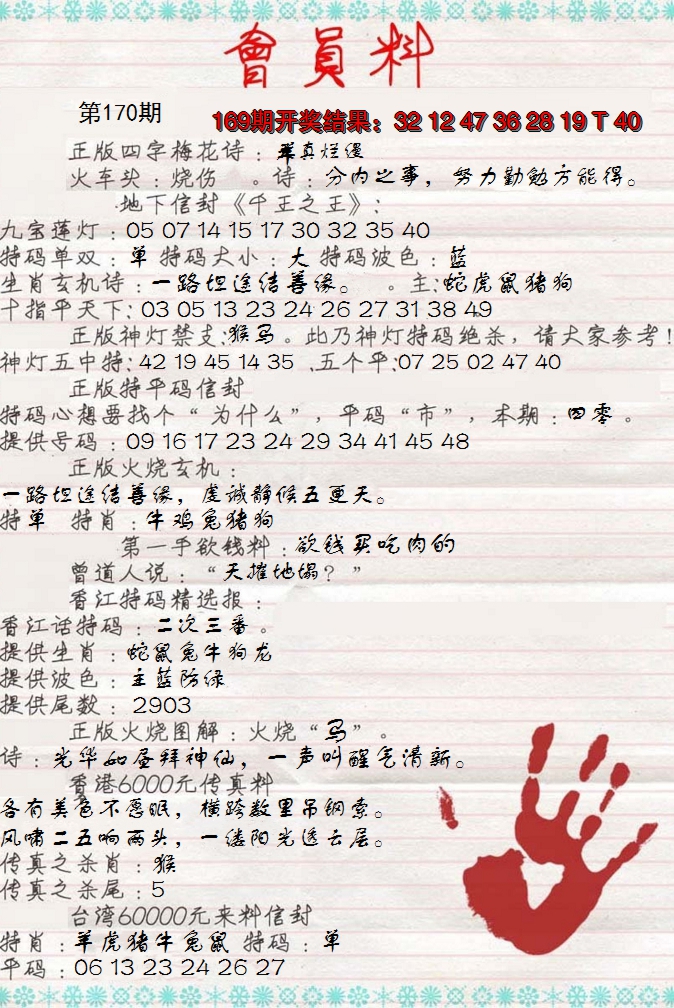 會員料
第170期
169期开奖结果：32 12 47 36 28 19 T 40
正版四字梅花诗：真烂缦
火车头：烧伤 。诗：分内之事，努力勤勉方能得。
地下信封《千王之王》：
九宝莲灯：05 07 14 15 17 30 32 35 40
特码单双：单 特码大小：大 特码波色：蓝
生肖玄机诗：一路坦途结善缘。 。主：蛇虎鼠猪狗
十指平天下：03 05 13 23 24 26 27 31 38 49
正版神灯禁支：猴马。此乃神灯特码绝杀，请大家参考！
神灯五中特：42 19 45 14 35 .五个平：07 25 02 47 40
正版特平码信封
特码心想要找个“为什么”，平码“市”，本期：四零。
提供号码：09 16 17 23 24 29 34 41 45 48
正版火烧玄机：
一路坦途结善缘，虔诚静候五更天。
特单 特肖：牛鸡兔猪狗
第一手欲钱料：欲钱买吃肉的
曾道人说：“天摧地塌？”
香江特码精选报：
香江话特码：二次三番。
提供生肖：蛇鼠兔牛狗龙
提供波色：主蓝防绿
提供尾数：2903
正版火烧图解：火烧“马”。
诗：光华如昼拜神仙，一声叫醒气清新。
香港6000元传真料
各有美色不愿眠，横跨数里吊钢索。
风啸二五响两头，一缕阳光透云层。
传真之杀肖：猴
传真之杀尾：5
台湾60000元来料信封
特肖：羊虎猪牛兔鼠 特码：单
平码：06 13 23 24 26 27